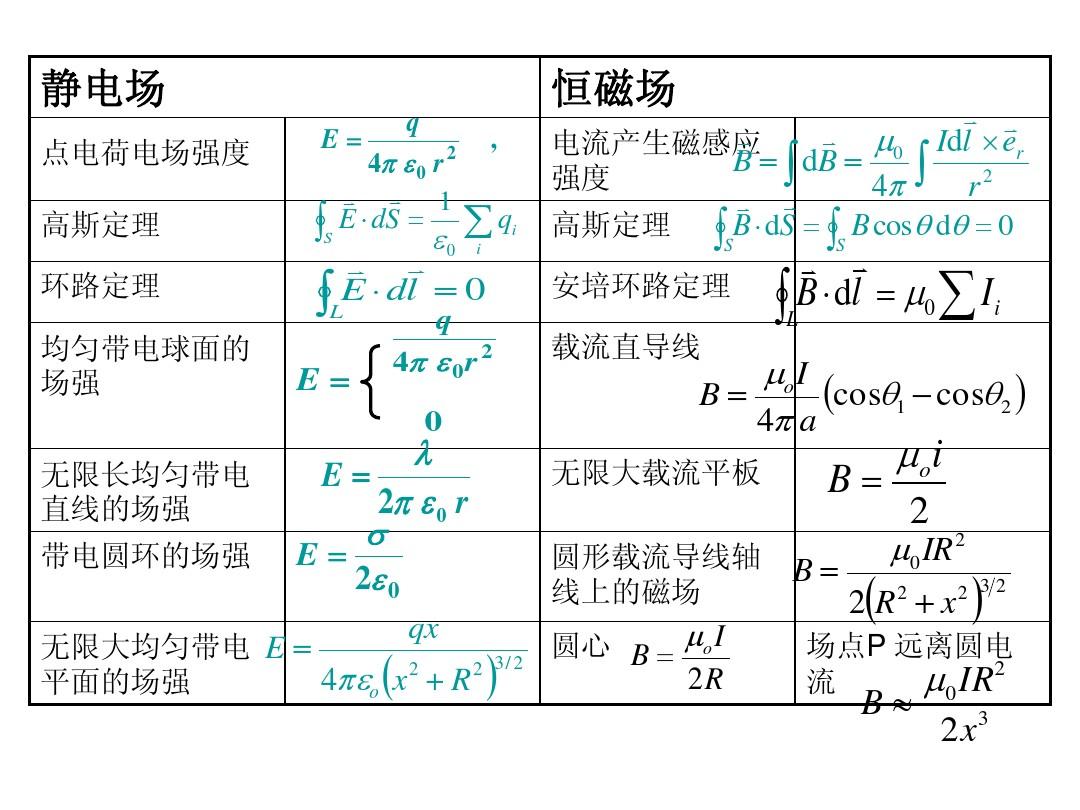 静电场
恒磁场
点电荷电场强度
E = q / 4π ε₀ r² ,
电流产生磁感应
强度
B⃗ = ∫ dB⃗ = μ₀/4π ∫ Idl⃗ × e⃗ᵣ / r²
高斯定理
∮_S E⃗ · dS⃗ = 1/ε₀ ∑_i qᵢ
高斯定理
∮_S B⃗ · dS⃗ = ∮_S B cos θ dθ = 0
环路定理
∮_L E⃗ · dl⃗ = 0
安培环路定理
∮_L B⃗ · dl⃗ = μ₀ ∑ Iᵢ
均匀带电球面的
场强
E = { q / 4π ε₀r²
0
载流直导线
B = μₒI / 4πa (cosθ₁ − cosθ₂)
无限长均匀带电
直线的场强
E = λ / 2π ε₀ r
无限大载流平板
B = μₒi / 2
带电圆环的场强
E = σ / 2ε₀
圆形载流导线轴
线上的磁场
B = μ₀IR² / 2(R² + x²)^3/2
无限大均匀带电
平面的场强
E = qx / 4πεₒ(x² + R²)^3/2
圆心
B = μₒI / 2R
场点P 远离圆电
流
B ≈ μ₀IR² / 2x³